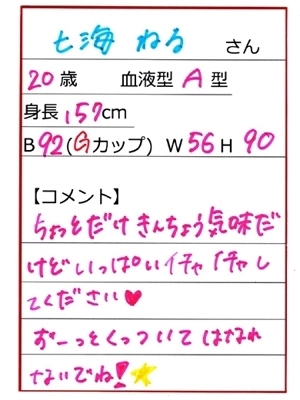 七海 ねる さん
20歳 血液型 A 型
身長 157cm
B92(Gカップ) W 56 H 90
【コメント】
ちょっとだけ きんちょう気味だ
けど いっぱい イチャ イチャし
てください♥
ずーっとくっついて はなれ
ないでね!⭐